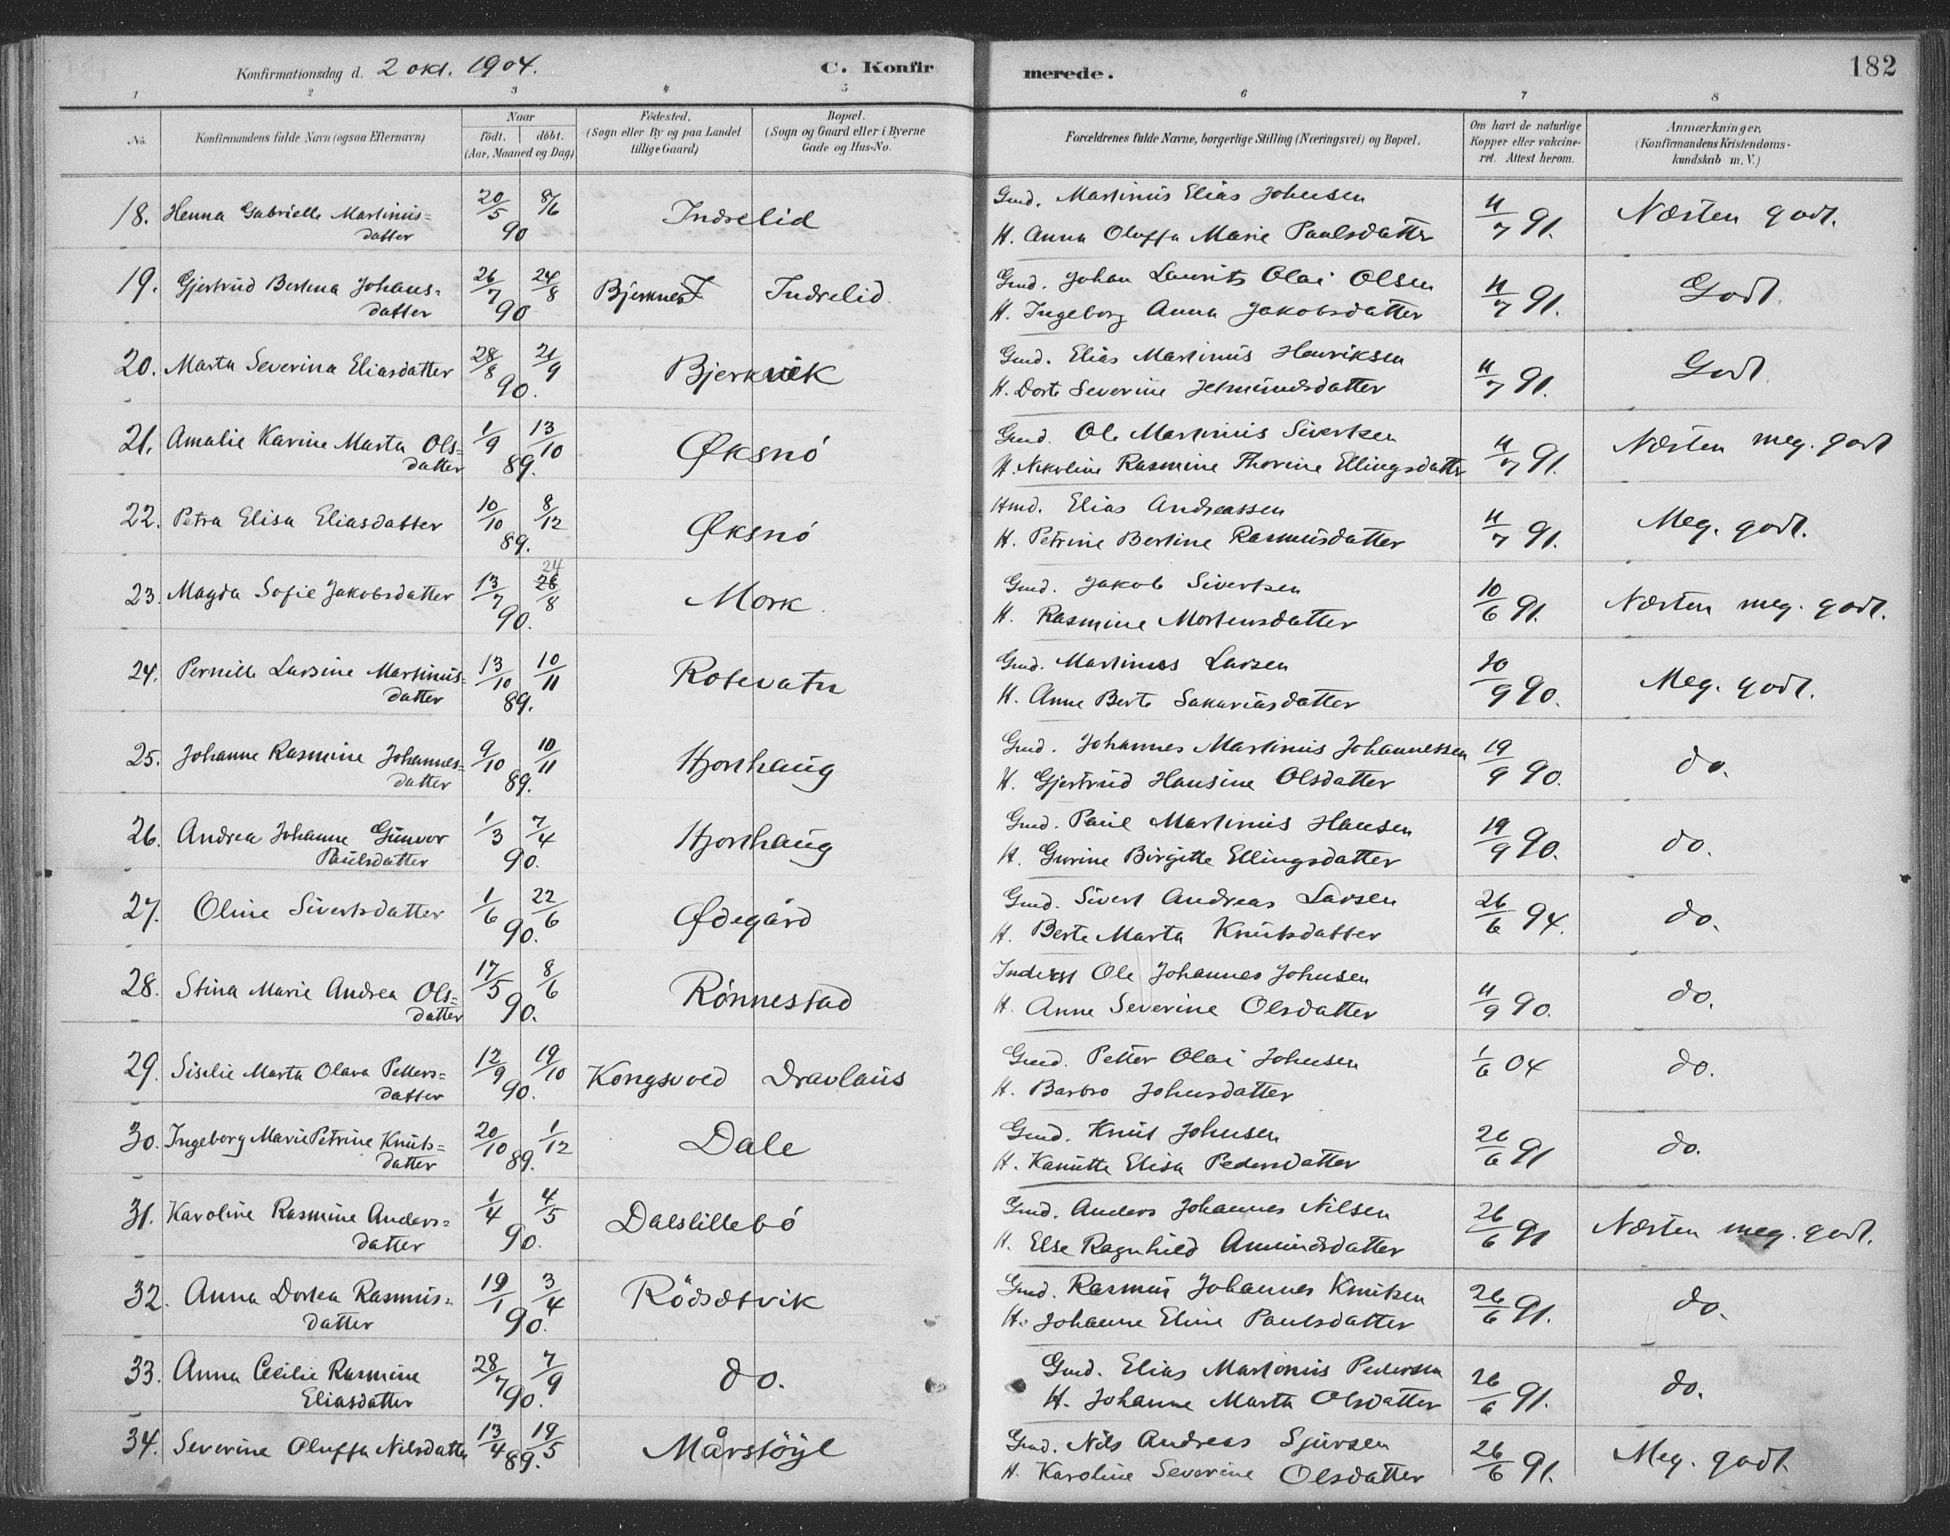 Konfirmationsdag d. 2 okt. 1904. C. Konfirmerede. 182
1 2 3 4 5 6 7 8
No. Konfirmandens fulde Navn (ogsaa Efternavn) Naar født. døbt. (Aar, Maaned og Dag) Fødested. (Sogn eller By og paa Landet tillige Gaard) Bopæl. (Sogn og Gaard eller i Byerne Gade og Hus-No. Forældrenes fulde Navne, borgerlige Stilling (Næringsvei) og Bopæl. Om havt de naturlige Kopper eller vaccineret. Attest herom. Anmærkninger. (Konfirmandens Kristendomskundskab m. V.)
18. Henna Gabrielle Martinus= 20/5 8/6 Indrelid Gmd. Martinus Elias Johnsen 11/7 91. Næsten godt.
datter 90 H. Anna Oluffa Marie Paulsdatter
19. Gjertrud Bertina Johans= 26/7 24/8 Bjerknes Indrelid. Gmd. Johan Laurits Olai Olsen 11/7 91. Godt.
datter 90 H. Ingeborg Anna Jakobsdatter
20. Marta Severina Eliasdatter 28/8 21/9 Bjerkvik Gmd. Elias Martinus Henriksen 11/7 91. Godt.
90. H. Dorte Severine Jetmundsdatter
21. Amalie Karine Marta Ols= 1/9 13/10 Øksnø Gmd. Ole Martinus Sivertsen 11/7 91. Næsten meg. godt
datter 89. H. Nikoline Rasmine Thorine Ellingsdatter
22. Petra Elisa Eliasdatter 10/10 8/12 Øksnø Hmd. Elias Andreassen 11/7 91. Meg. godt.
89. H. Petrine Bertine Rasmusdatter
24
23. Magda Sofie Jakobsdatter 13/7 26/8 Mork. Gmd. Jakob Sivertsen 10/6 91. Næsten meg. godt.
90. H. Rasmine Mortensdatter
24. Pernille Larsine Martinus= 13/10 10/11 Rotevatn Gmd. Martinus Larsen 20/9 90. Meg. godt.
datter 89. H. Anne Berte Sakariasdatter
25. Johanne Rasmine Johannes= 9/10 10/11 Hjorthaug Gmd. Johannes Martinus Johannessen 19/9 90. do.
datter 89. H. Gjertrud Hansine Olsdatter
26. Andrea Johanne Gunvor 1/3 7/4 Hjorthaug Gmd. Paul Martinus Hansen 19/9 90. do.
Paulsdatter 90. H. Gurine Birgitte Ellingsdatter
27. Oline Sivertsdatter 1/6 22/6 Ødegård Gmd. Sivert Andreas Larsen 26/6 94. do.
90. H. Berte Marta Knutsdatter
28. Stina Marie Andrea Ols= 17/5 8/6 Rønnestad Inderst Ole Johannes Johnsen 11/9 90. do.
datter 90. H. Anne Severine Olsdatter
29. Sisilie Marta Olava Petters= 12/9 19/10 Kongsvoed Dravlaus Gmd. Petter Olai Johnsen 1/6 04 do.
datter 90. H. Barbro Johnsdatter
30. Ingeborg Marie Petrine Knuts= 20/10 1/12 Dale Gmd. Knut Johnsen 26/6 91 do.
datter 89. H. Kanutte Elisa Pedersdatter
31. Karoline Rasmine Anders= 1/4 4/5 Dalslillebø Gmd. Anders Johannes Nilsen 26/6 91 Næsten meg. godt.
datter 90. H. Else Ragnhild Amundsdatter
32. Anna Dortea Rasmus= 19/1 3/4 Rødsætvik Gmd. Rasmus Johannes Knutsen 26/6 91. do.
datter 90. H. Johanne Eline Paulsdatter
33. Anna Cecilie Rasmine 28/7 7/9 do. Gmd. Elias Martinus Pedersen 26/6 91. do.
Eliasdatter 90. H. Johanne Marta Olsdatter
34. Severine Oluffa Nilsdatter 13/4 19/5 Mårstøyl Gmd. Nils Andreas Sjursen 26/6 91. Meg. godt.
89. H. Karoline Severine Olsdatter